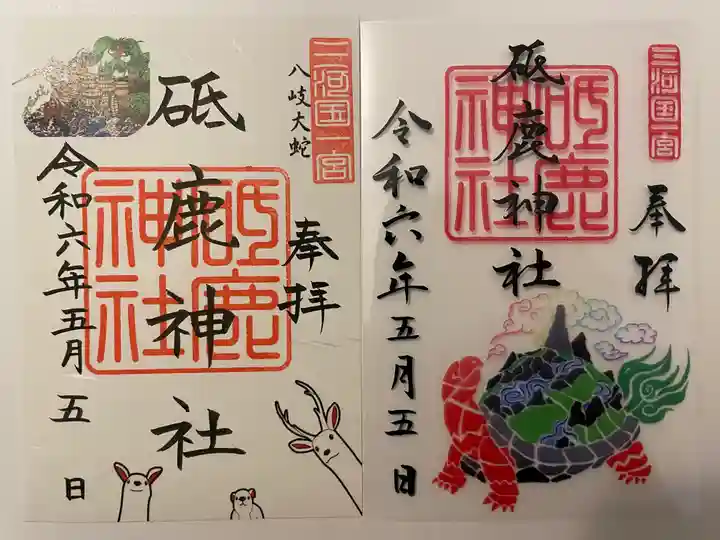 三河国一宮
八岐大蛇
奉拝
砥鹿神社
砥鹿神社
令和六年五月五日
三河国一宮
奉拝
砥鹿神社
砥鹿神社
令和六年五月五日